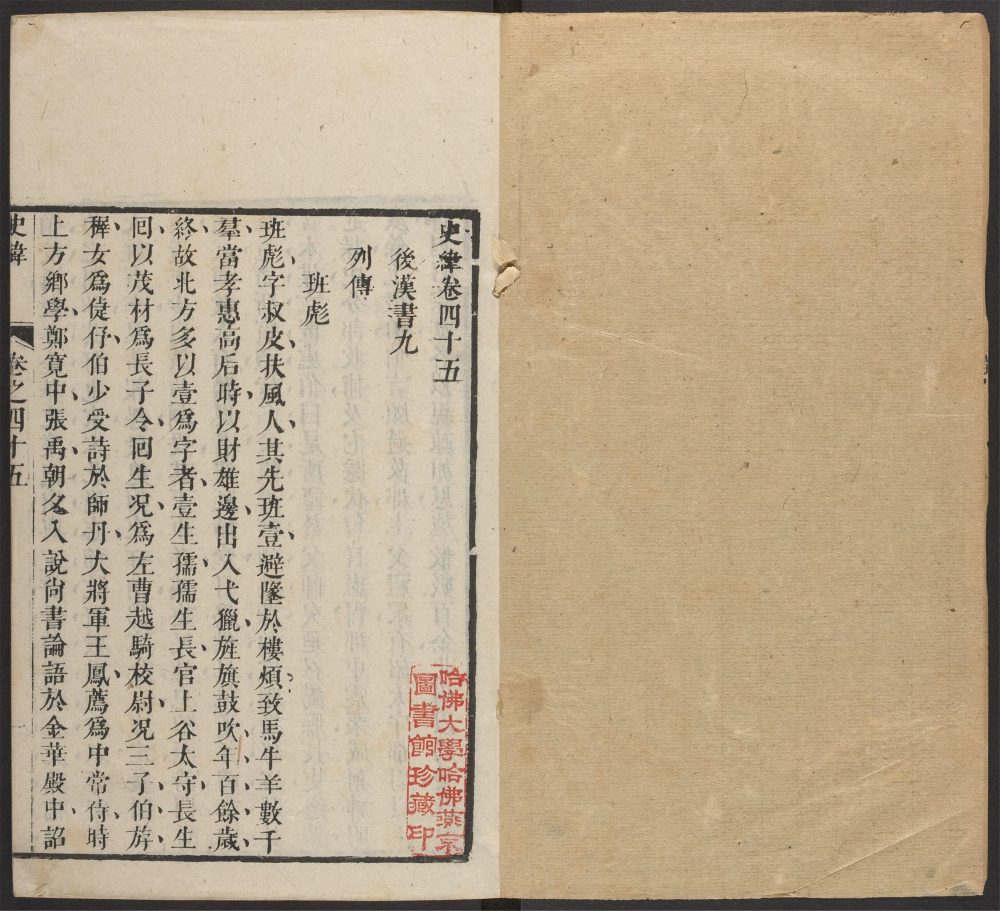 史緯卷四十五
後漢書九
列傳
班彪
班彪字叔皮扶風人其先班壹避墜於樓煩致馬牛羊數千
羣當孝惠高后時以財雄邊出入弋獵旌旗鼓吹年百餘歲
終故北方多以壹爲字者壹生孺孺生長官上谷太守長生
囘以茂材爲長子令囘生况爲左曹越騎校尉况三子伯斿
穉女爲倢伃伯少受詩於師丹大將軍王鳳薦爲中常侍時
上方鄉學鄭寬中張禹朝夕入說尚書論語於金華殿中詔
史緯
卷之四十五
一
哈佛大學哈佛燕京
圖書館珍藏印